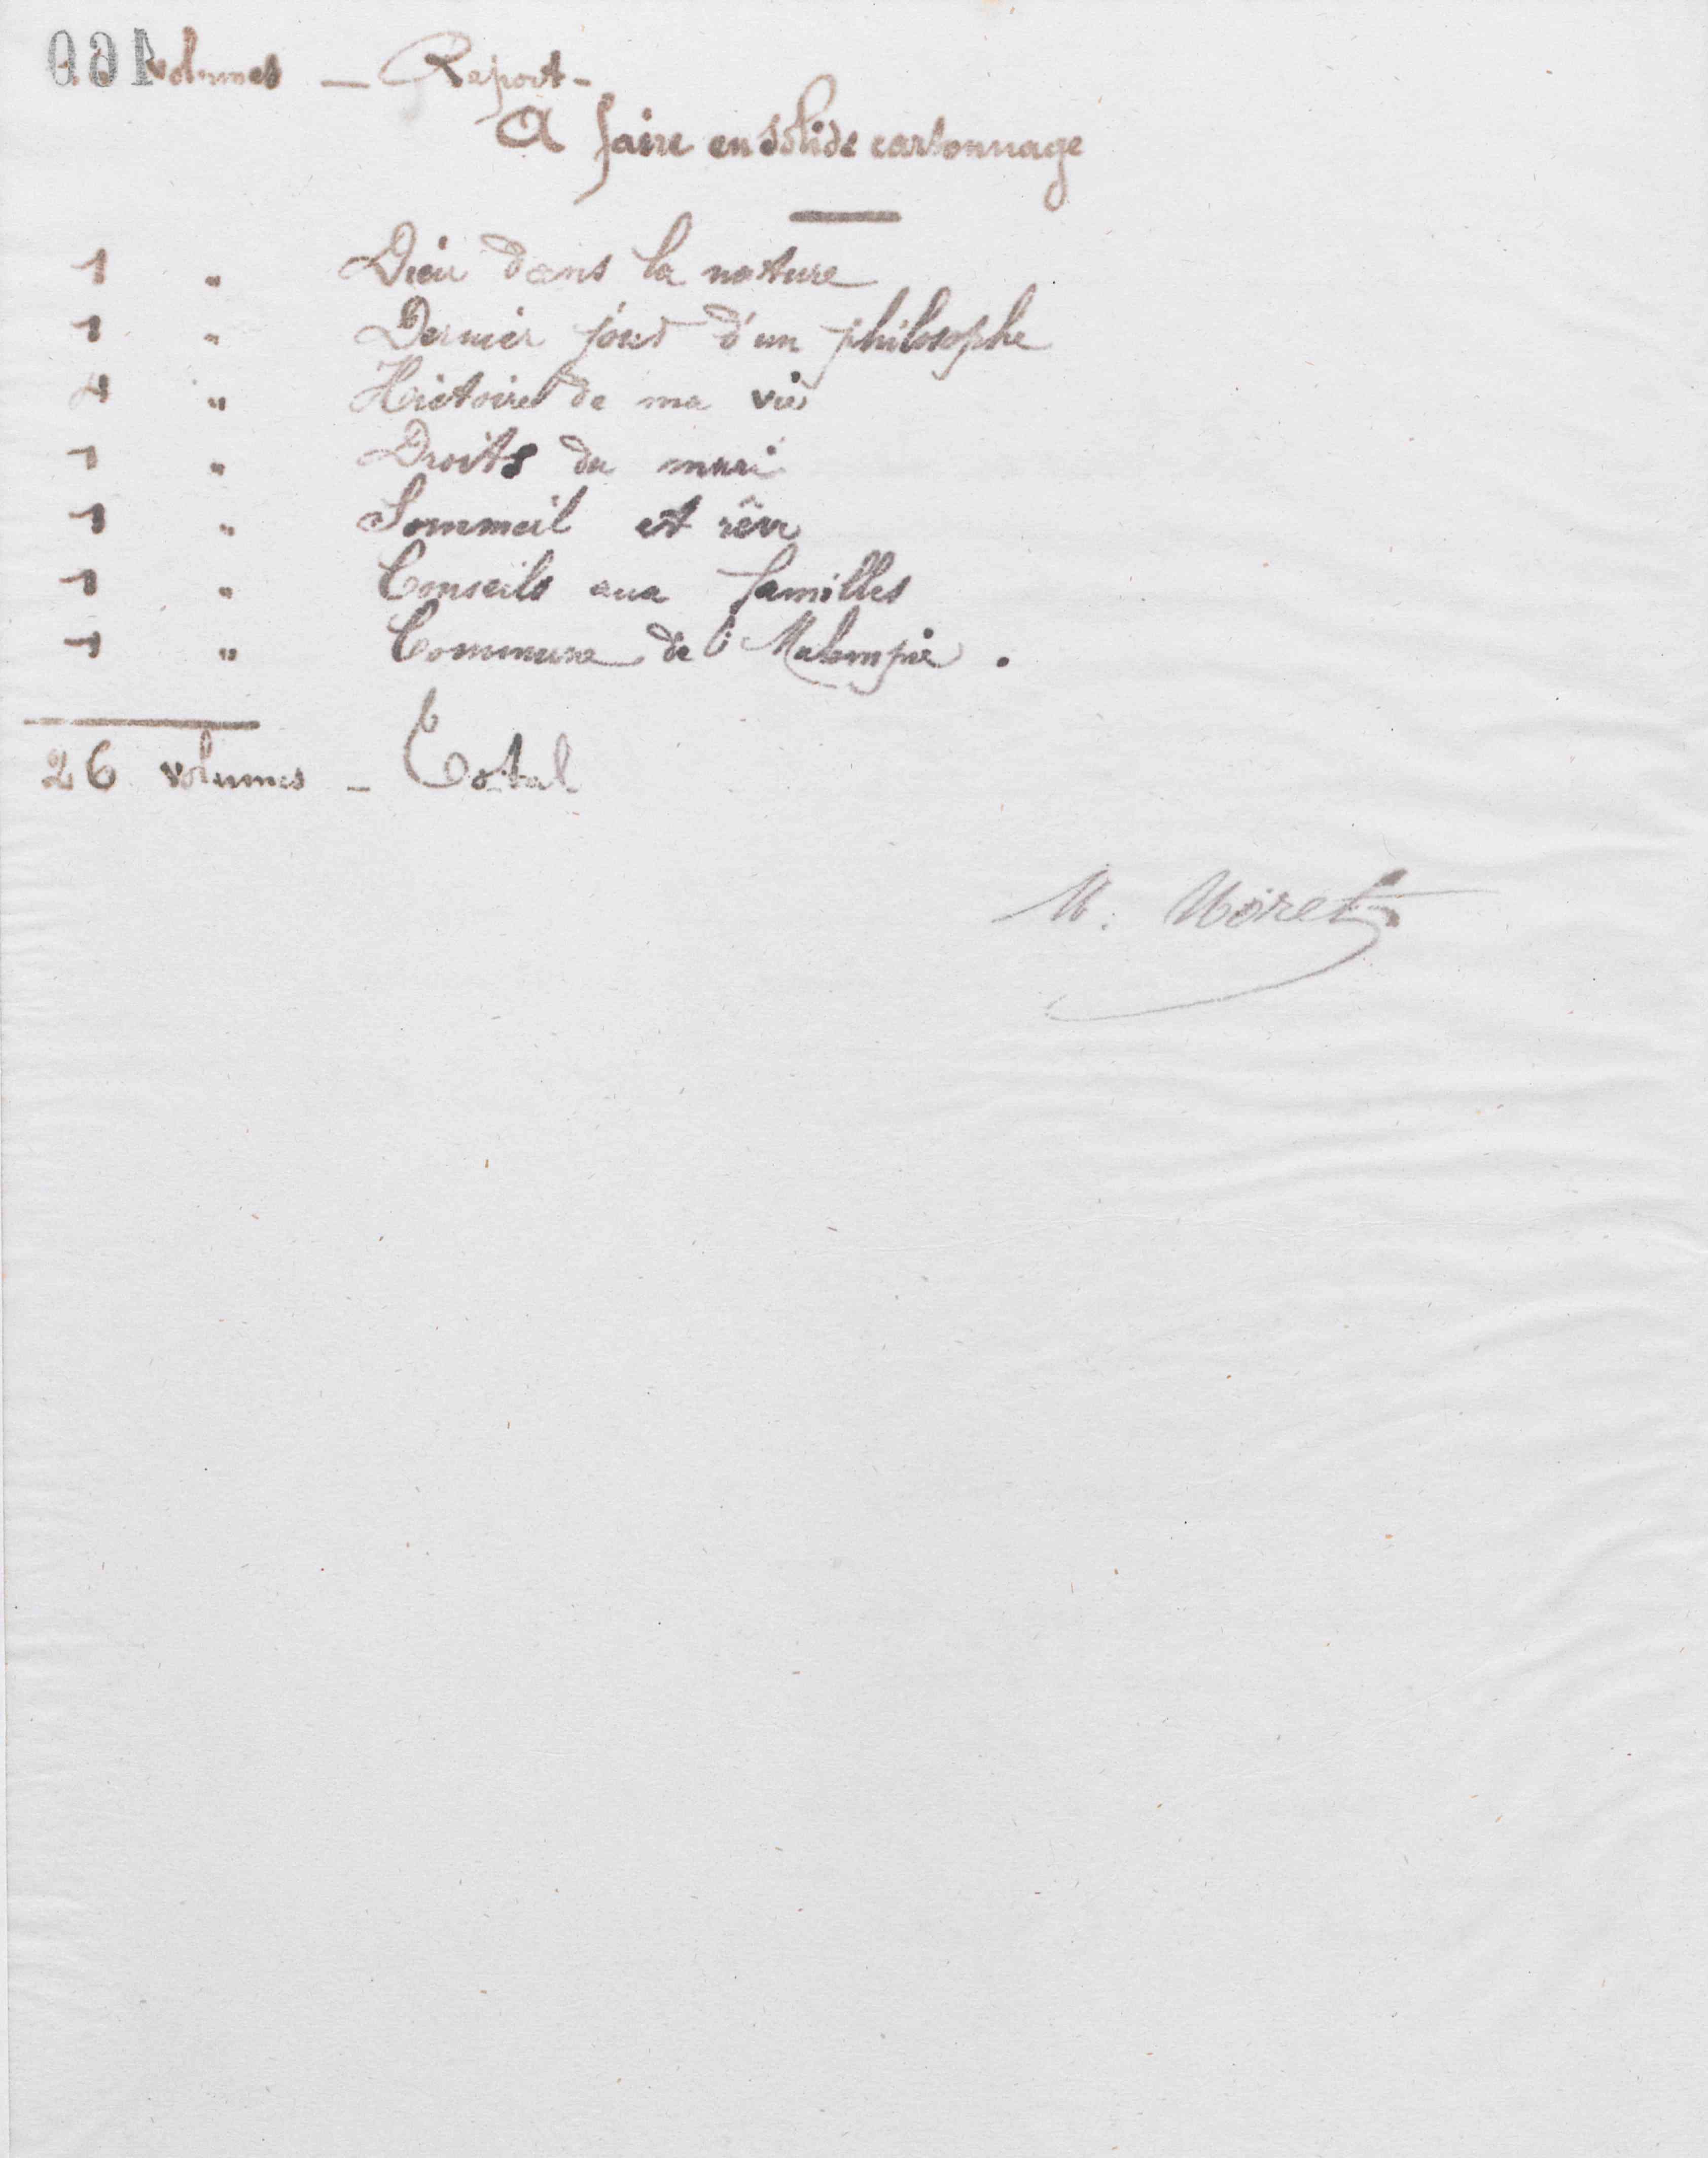 volumes — Report —
A faire en solide cartonnage
1 " Dieu dans la nature
1 " Dernier jours d'un philosophe
4 " Histoire de ma vie
1 " Droits du mari
1 " Sommeil et rêve
1 " Conseils aux familles
1 " Commune de Malenpré .
26 volumes — Total
M. Moret